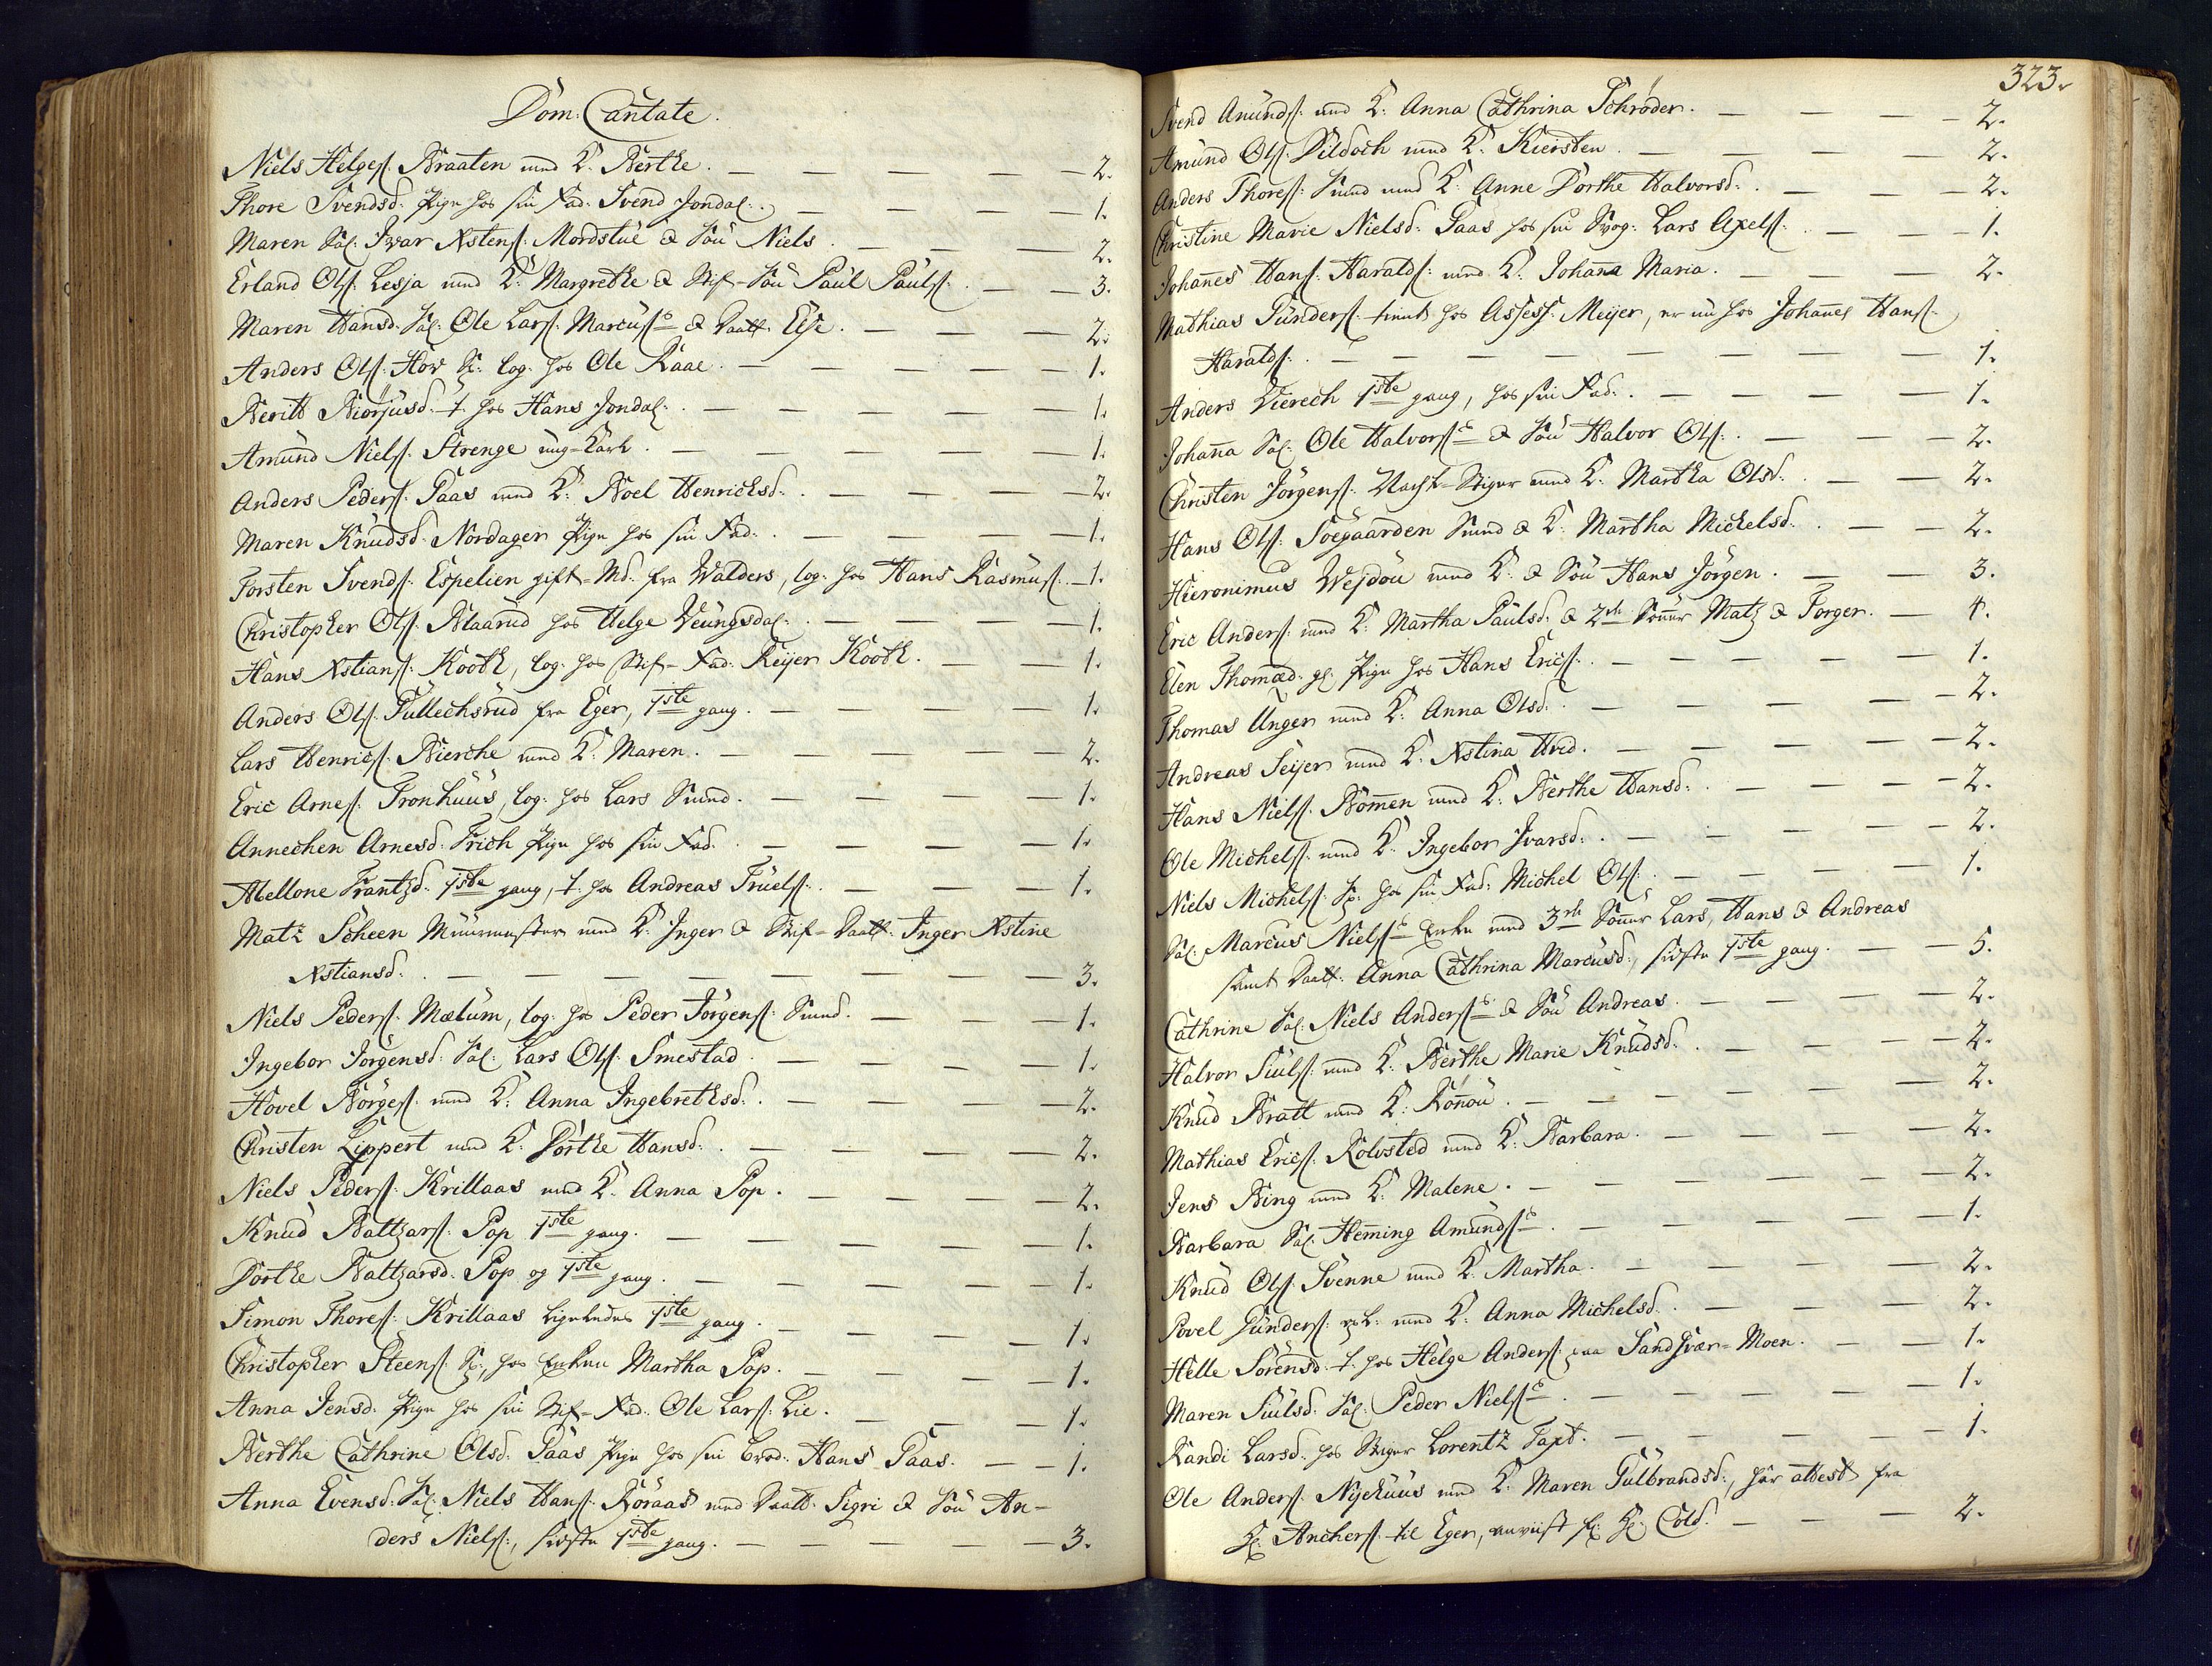 Dom: Cantate.
Niels Helgeſ: Braaten med K: Berthe. — — — — 2.
Thore Svendsd: Pige hos sin Fad: Svend Jondal: — — — — 1.
Maren Sal: Iwar Xstenſ: Mordstue & Søn Niels. — — — 2.
Erland Olſ: Lesja med K: Margrethe & Stif-Søn Paul Paulſ: — — 3.
Maren Hansd: Sal: Ole Larſ: Marcuſes & Datt: Else. — — — 2.
Anders Olſ: How log: hos Ole Raae. — — — — — 1.
Beritt Biörjusd: t. hos Hans Jondal: — — — — — 1.
Amund Nielſ: Strenge ung-Karl. — — — — — 1.
Anders Pederſ: Paas med K: Boel Henrichsd: — — — — 2.
Maren Knudsd: Nordager Pige hos sin Fad: — — — — 1.
Torsten Svendſ: Espelien gift-Md: fra Walders, log: hos Hans Rasmuſ: — 1.
Christopher Olſ: Blaarud hos Helge Veungsdal: — — — — 1.
Hans Xstianſ: Kooth, log: hos Stif-Fad: Reijer Kooth. — — — 1.
Anders Olſ: Tullechsrud fra Eger, 1ste gang. — — — — 1.
Lars Henricſ: Bierche med K: Maren. — — — — — 2.
Eric Arneſ: Tronhuus, log: hos Lars Smed. — — — — 1.
Annechen Arnesd: Frich Pige hos sin Fad: — — — — 1.
Mellone Frantzd: 1ste gang, t. hos Andreas Truelſ: — — — 1.
Matz Scheen Muurmester med K: Inger & Stif-Datt: Inger Xstine
Xstiansd: — — — — — — — 3.
Niels Pederſ: Mælum, log: hos Peder Jörgenſ: Smed. — — — 1.
Ingebor Jörgensd: Sal: Lars Olſ: Smestad. — — — — 1.
Hovel Börgeſ: med K: Anna Ingebrethsd: — — — 2.
Christen Lippert med K: Dorthe Hansd: — — — — 2.
Niels Pederſ: Krillaas med K: Anna Pop. — — — — 2.
Knud Baltzarſ: Pop 1ste gang. — — — — — 1.
Dorthe Baltzarsd: Pop og 1ste gang. — — — — — 1.
Simon Thoreſ: Krillaas ligeledes 1ste gang. — — — — 1.
Christopher Steenſ: hos Enken Martha Pop. — — — — 1.
Anna Jensd: Pige hos sin Stif-Fad: Ole Larſ: Lie. — — — 1.
Berthe Cathrine Olsd: Paas Pige hos sin Brod: Hans Paas. — — 1.
Anna Evensd: Sal: Niels Hanſ: Röraas med Datt: Sigri & Søn An-
ders Nielſ:, sidste 1ste gang. — — — — — 3.
323.
Svend Amundſ: med K: Anna Cathrina Schröder. — — — — 2.
Amund Olſ: Dildoch med K: Kiersten. — — — — 2.
Anders Thoreſ: Smed med K: Anne Dorthe Halvorsd: — — — 2.
Christine Marie Nielsd: Paas hos sin Svog: Lars Axelſ: — — — 1.
Johannes Hanſ: Haraldſ: med K: Johanna Maria. — — — 2.
Mathias Gunderſ: tient hos Assess: Meijer, er nu hos Johannes Hanſ:
Haraldſ: — — — — — — — — 1.
Anders Vierech 1ste gang, hos sin Fad: — — — — 1.
Johanna Sal: Ole Halvorſes & Søn Halvor Olſ: — — — 2.
Christen Jörgenſ: Stiger med K: Martha Olsd: — — 2.
Hans Olſ: Soegaarden Smed & K: Martha Michelsd: — — 2.
Hieronimus Wejdou med K: & Søn Hans Jörgen. — — 3.
Eric Anderſ: med K: Martha Paulsd: & 2de Sönner Matz & Torger. — 4.
Elen Thomæd: gl: Pige hos Hans Ericſ: — — — — — 1.
Thomas Unger med K: Anna Olsd: — — — — — 2.
Andreas Seijer med K: Xstina Hvid. — — — — — 2.
Hans Nielſ: Bommen med K: Berthe Hansd: — — — — 2.
Ole Michelſ: med K: Ingebor Ivarsd: — — — — — 2.
Niels Michelſ: hos sin Fad: Michel Olſ: — — — — 1.
Sal: Marcus Nielſes Enke med 3de Sönner Lars, Hans & Andreas
samt Datt: Anna Cathrina Marcusd:, sidste 1ste gang. — — 5.
Cathrine Sal: Niels Anderſes & Søn Andreas. — — — — 2.
Halvor Siulſ: med K: Berthe Marie Knudsd: — — — — 2.
Knud Bratt med K: Rönnou. — — — — — 2.
Mathias Ericſ: Rolvsted med K: Barbara. — — — — 2.
Jens Bing med K: Malene. — — — — — 2.
Barbara Sal: Hemming Amundſes. — — — — — 1.
Knud Olſ: Svenne med K: Martha. — — — — — 2.
Povel Gunderſ: med K: Anna Michelsd: — — — — 2.
Helle Sörensd: t. hos Helge Anderſ: paa Sandsvær-Moen. — — 1.
Maren Siulsd: Sal: Peder Nielſes. — — — — — 1.
Randi Larsd: hos Stiger Lorentz Tapt. — — — — — 1.
Ole Anderſ: Nyehuus med K: Maren Gulbrandsd:, har attest fra
Hr: Ancherſ: til Eger, anviist Hr: Cold. — — — 2.